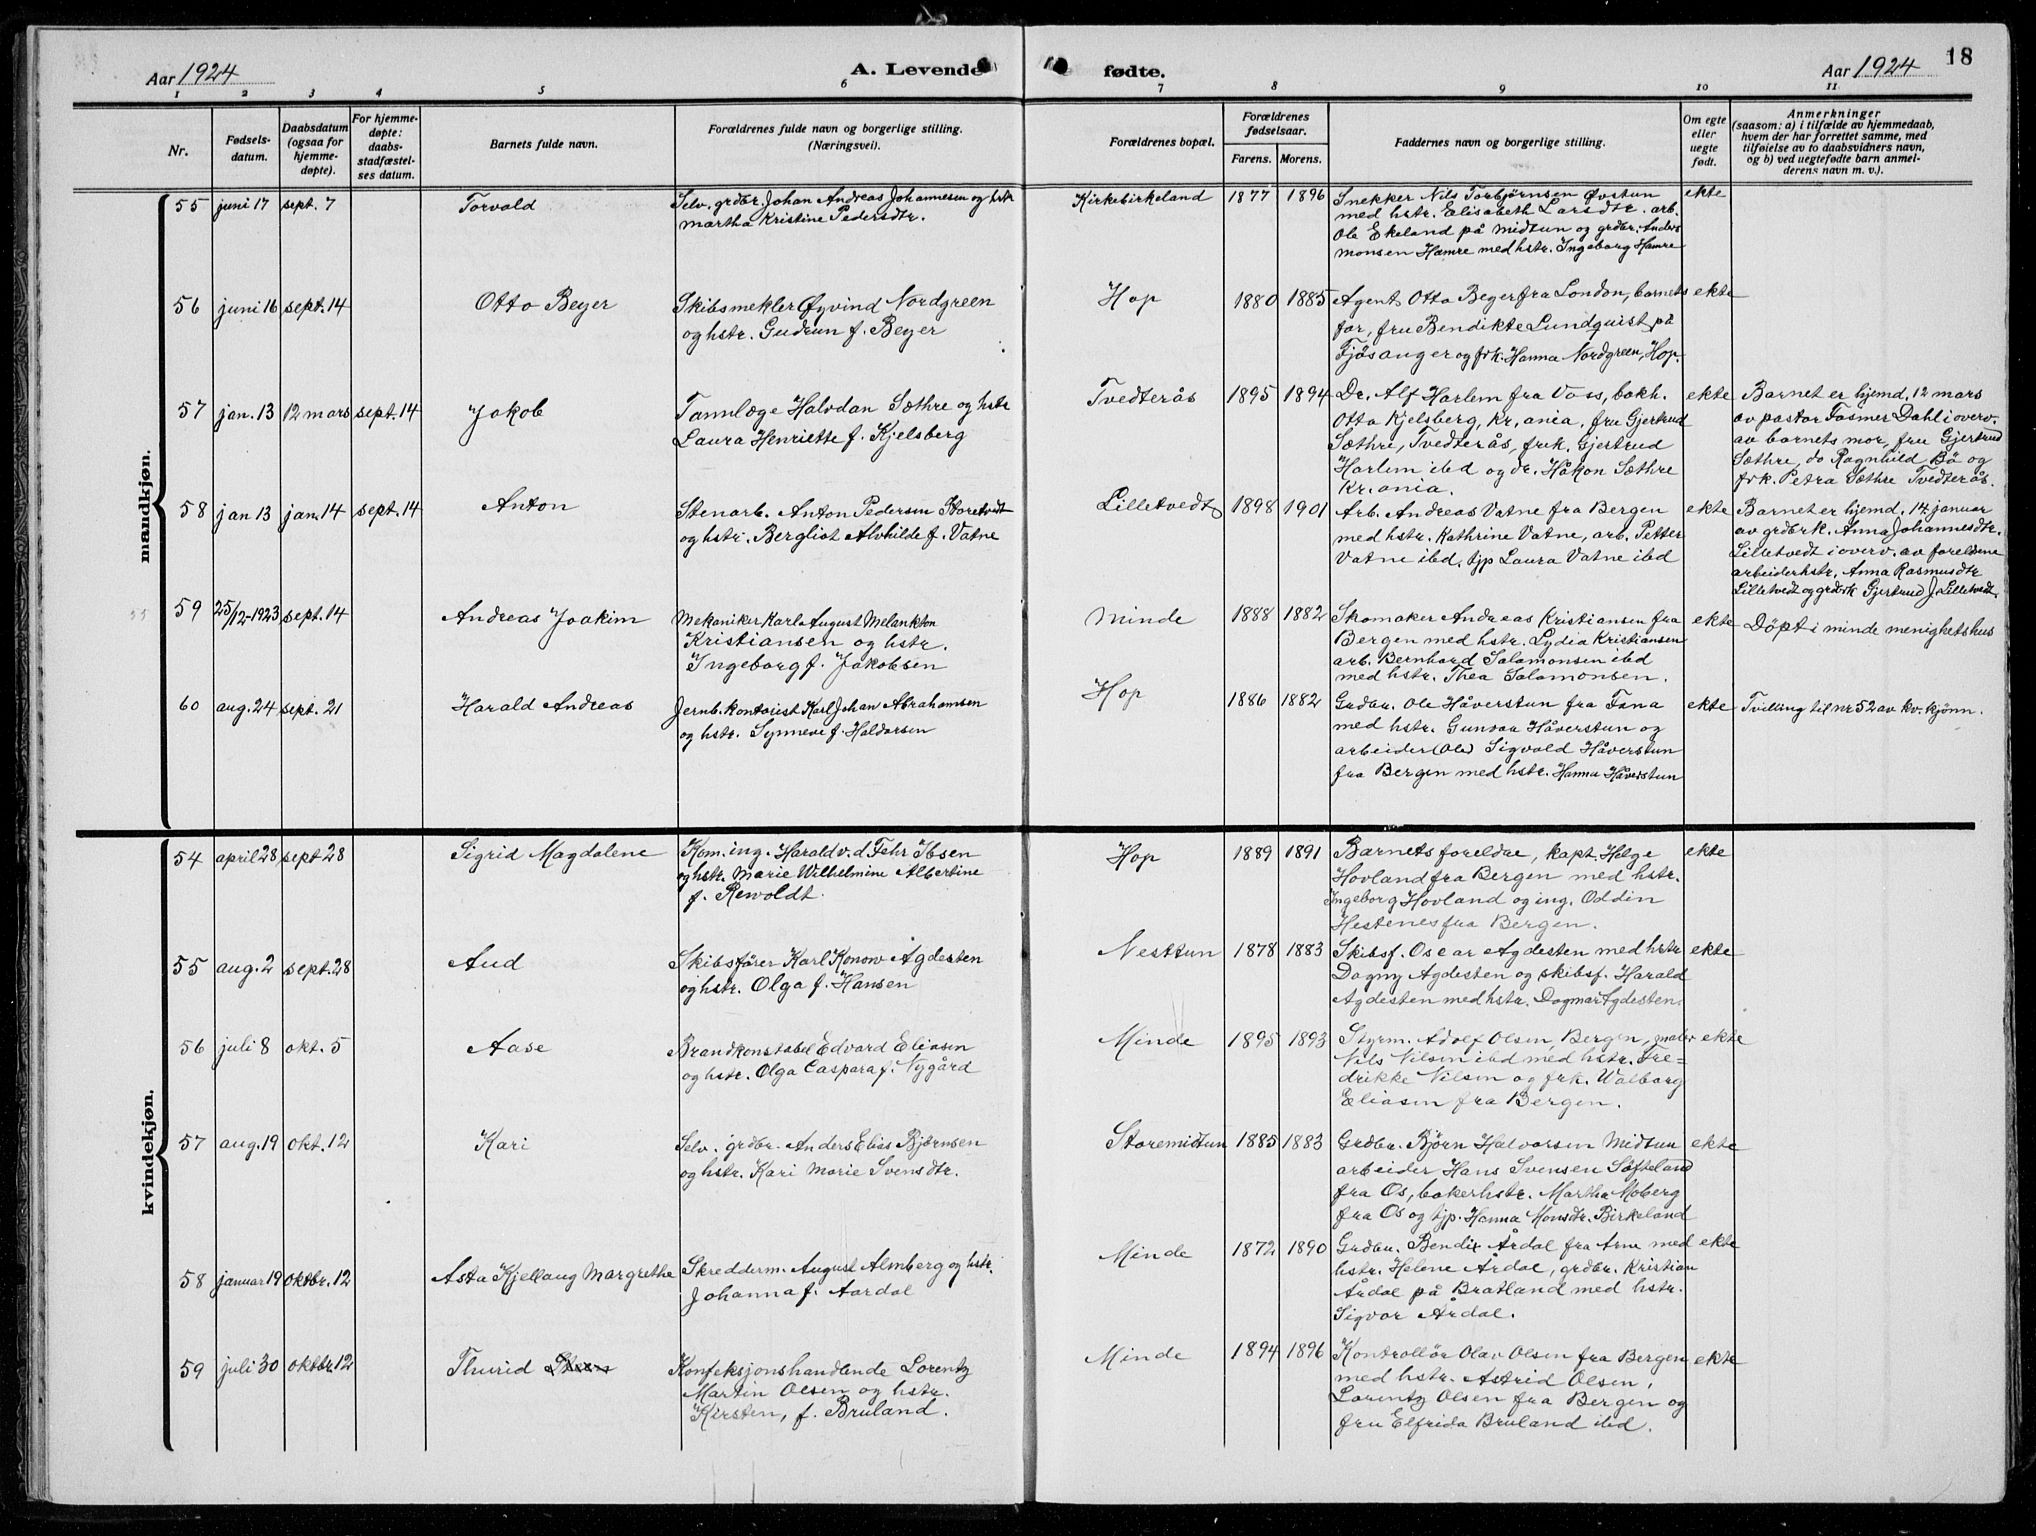 Aar 1924
A. Levende fødte.
Aar 1924
18
1 2 3 4 5 6 7 8 9 10 11
Nr.
Fødsels-
datum.
Daabsdatum
(ogsaa for
hjemme-
døpte).
For hjemme-
døpte:
daabs-
stadfæstel-
ses datum.
Barnets fulde navn.
Forældrenes fulde navn og borgerlige stilling.
(Næringsvei).
Forældrenes bopæl.
Forældrenes
fødselsaar.
Farens. Morens.
Faddernes navn og borgerlige stilling.
Om egte
eller
uegte
født.
Anmerkninger
(saasom: a) i tilfælde av hjemmedaab,
hvem der har forrettet samme, med
tilføielse av to daabsvidners navn,
og b) ved uegtefødte barn anmel-
derens navn m. v.).
mandkjøn.
55 juni 17 sept. 7 Torvald
Selv. grdbr. Johan Andreas Johannesen og hstr.
Martha Kristine Pedersdtr.
Kirkebirkeland 1877 1896
Snekker Nils Torbjørnsen Øvstun
med hstr. Elisabeth Larsdtr. arb.
Ole Ekeland på Midtun og grdbr. Anders
Monsen Hamre med hstr. Ingeborg Hamre
ekte
56 juni 16 sept. 14 Otto Beyer
Skibsmekler Øyvind Nordgreen
og hstr. Gudrun f. Beyer
Hop 1880 1885
Agent Otto Beyer fra London, barnets
far, fru Bendikte Lundquist på
Fjøsanger og frk. Hanna Nordgreen, Hop.
ekte
57 jan. 13 12 mars sept. 14 Jakob
Tannlæge Halvdan Sæthre og hstr
Laura Henriette f. Kjelsberg
Tvedterås 1895 1894
Dr. Alf Harlem fra Voss, bokh.
Otto Kjelsberg, Kr.ania, fru Gjertrud
Sæthre, Tvedterås, frk. Gjertrud
Harlem ibd og dr. Håkon Sæthre
Kr.ania.
ekte
Barnet er hjemd. 12 mars
av pastor Fasmer Dahl i overv.
av barnets mor, fru Gjertrud
Sæthre, do Ragnhild Bö og
frk. Petra Sæthre Tvedterås.
58 jan 13 jan. 14 sept. 14 Anton
Stenarb. Anton Pedersen Storetvedt
og hstr. Bergliot Alvhilde f. Vatne
Lilletvedt 1898 1901
Arb. Andreas Vatne fra Bergen
med hstr. Kathrine Vatne, arb. Petter
Vatne ibd, tjp Laura Vatne ibd
ekte
Barnet er hjemd. 14 januar
av grdbrk. Anna Johannesdtr.
Lilletvedt i overv. av foreldrene
arbeiderhstr. Anna Rasmusdtr
Lilletvedt og grdbrk Gjertrud J. Lilletvedt.
59 25/12-1923 sept. 14 Andreas Joakim
Mekaniker Karl August Melankton
Kristiansen og hstr.
Ingeborg f. Jakobsen
Minde 1888 1882
Skomaker Andreas Kristiansen fra
Bergen med hstr. Lydia Kristiansen
arb. Bernhard Salamonsen ibd
med hstr. Thea Salamonsen.
ekte
Döpt i minde menighetshus
60 aug. 24 sept. 21 Harald Andreas
Jernb. kontorist Karl Johan Abrahamsen
og hstr. Synneve f. Haldorsen
Hop 1886 1882
Grdbr. Ole Håverstun fra Fana
med hstr. Gunvor Håverstun og
arbeider (Ole) Sigvald Håverstun
fra Bergen med hstr. Hanna Håverstun
ekte
Tvilling til nr 52 av kv. kjønn.
kvindekjøn.
54 april 28 sept 28 Sigrid Magdalene
Kom. ing. Harald v. d. Fehr Ibsen
og hstr. Marie Wilhelmine Albertine
f. Rewoldt.
Hop 1889 1891
Barnets foreldre, kapt. Helge
Hovland fra Bergen med hstr.
Ingeborg Hovland og ing. Oddin
Hestenes fra Bergen.
ekte
55 aug. 2 sept. 28 Aud
Skibsfører Karl Konow Agdesten
og hstr. Olga f. Hansen
Nesttun 1878 1883
Skibsf. Oscar Agdesten med hstr
Dagny Agdesten og skibsf. Harald
Agdesten med hstr. Dagmar Agdesten.
ekte
56 juli 8 okt. 5 Aase
Brandkonstabel Edvard Eliasen
og hstr. Olga Caspara f. Nygård
Minde 1895 1893
Styrm. Adolf Olsen, Bergen, maler
Nils Nilsen ibd med hstr. Fre-
drikke Nilsen og frk. Walborg
Eliasen fra Bergen.
ekte
57 aug. 19 okt. 12 Kari
Selv. grdbr. Anders Elias Bjørnsen
og hstr. Kari Marie Svensdtr.
Storemidtun 1885 1883
Grdbr. Bjørn Halvorsen Midtun
arbeider Hans Svensen Søfteland
fra Os, bakerhstr. Martha Moberg
fra Os og tjp. Hanna Monsdtr. Birkeland
ekte
58 januar 19 oktbr. 12 Asta Kjellaug Margrethe
Skredderm. August Almberg og hstr.
Johanna f. Aardal
Minde 1872 1890
Grdbr. Bendix Årdal fra Arne med
hstr. Helene Årdal, grdbr. Kristian
Årdal på Bratland med hstr.
Sigvor Årdal.
ekte
59 juli 30 oktbr 12 Thurid
Konfeksjonshandlende Lorentz
Martin Olsen og hstr.
Kirsten, f. Bruland.
Minde 1894 1896
Kontrollör Olav Olsen fra Bergen
med hstr. Astrid Olsen,
Lorentz Olsen fra Bergen og
fru Elfrida Bruland ibd.
ekte